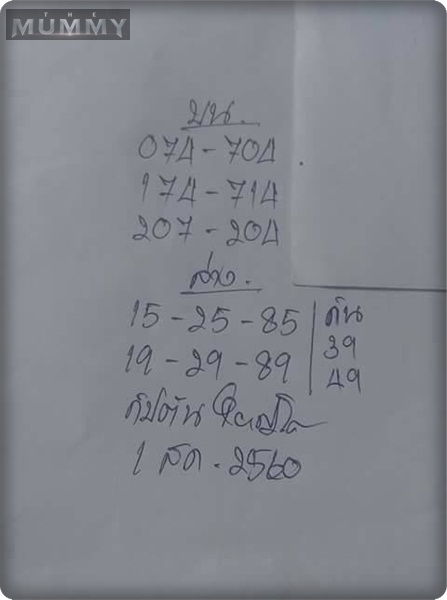 THE
MUMMY
บน.
074 - 704
174 - 714
207 - 204
ล่าง.
15 - 25 - 85
19 - 29 - 89
กัน
39
49
กัปตัน
1 สค. 2560